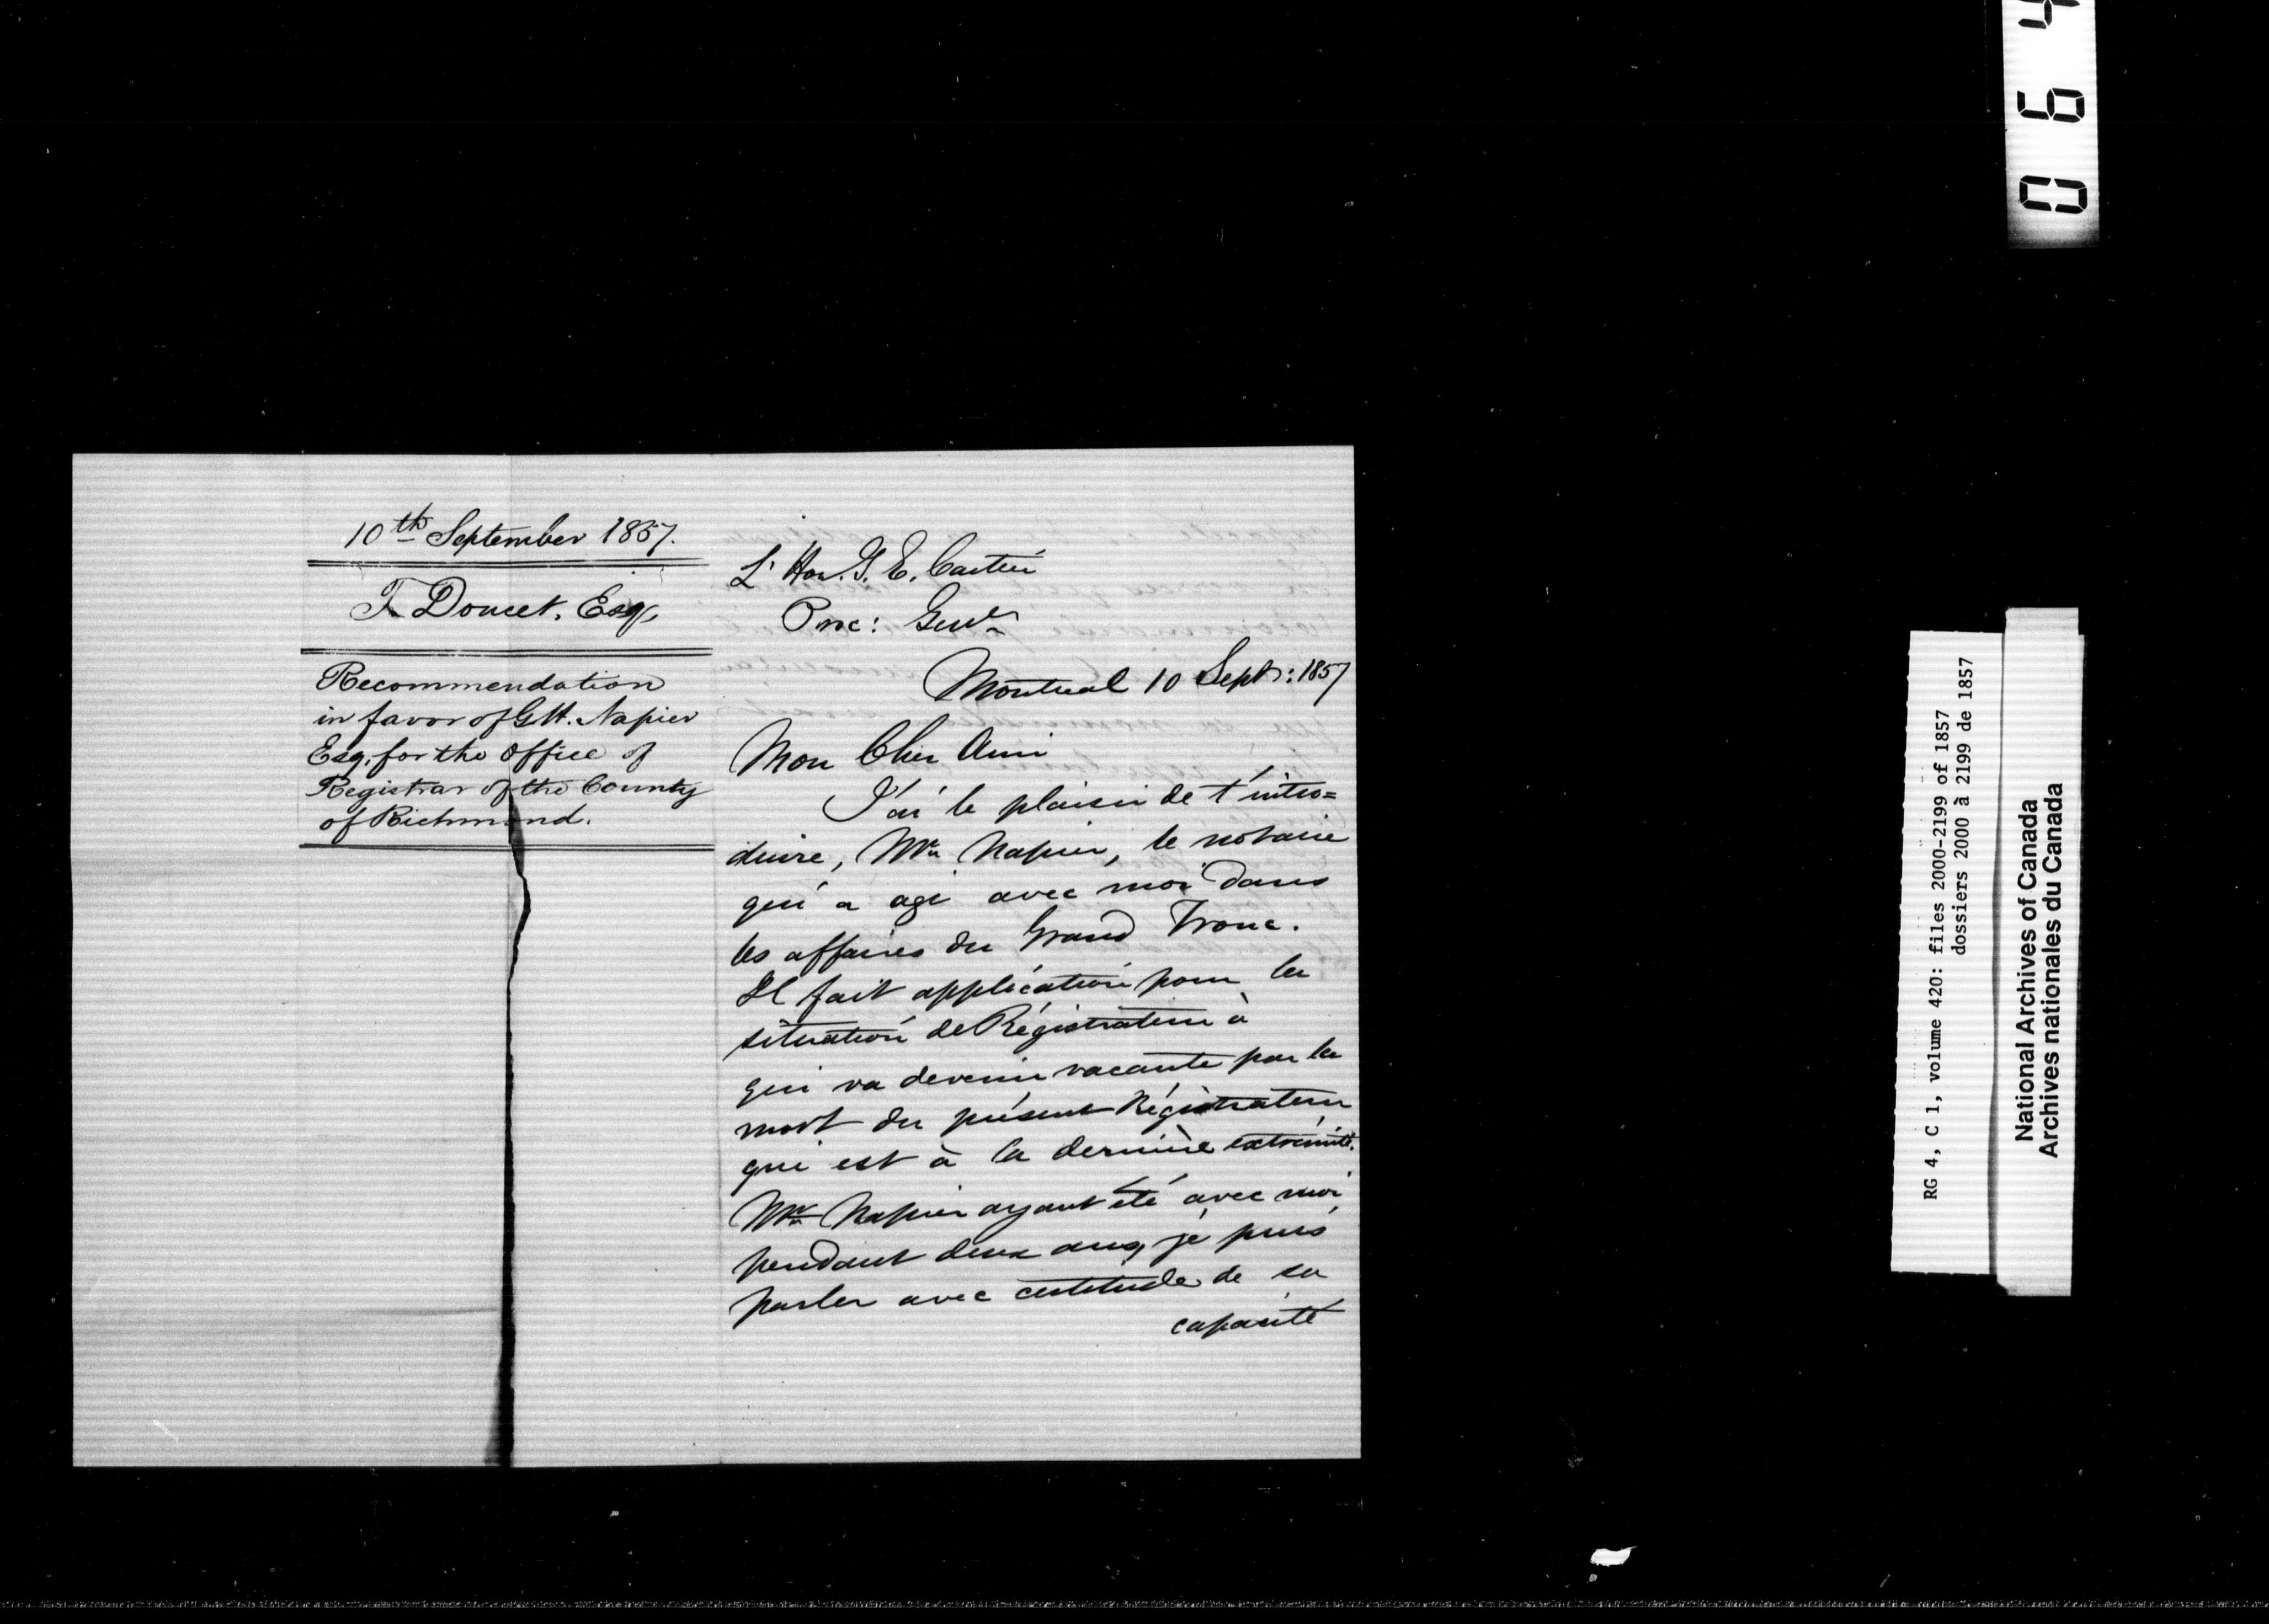 10th September 1857.
T Doucet, Esq,
Recommendation
in favor of G H. Napier
Esq. for the office of
Registrar of the County
of Richmond.
L' Hon. G. E. Cartier
Proc: Genl
Montreal 10 Sept: 1857
Mon Cher Ami
J'ai le plaisir de t'intro=
duire, Mr Napier, le notaire
qui a agi avec moi dans
les affaires du Grand Tronc.
Il fait application pour la
situation de Régistrateur à
qui va devenir vacante par la
mort du présent Régistrateur
qui est à la dernière extrémité.
Mr Napier ayant été avec moi
pendant deux ans, je puis
parler avec certitude de sa
capacité
0 6 4
RG 4, C 1, volume 420: files 2000-2199 of 1857
dossiers 2000 à 2199 de 1857
National Archives of Canada
Archives nationales du Canada